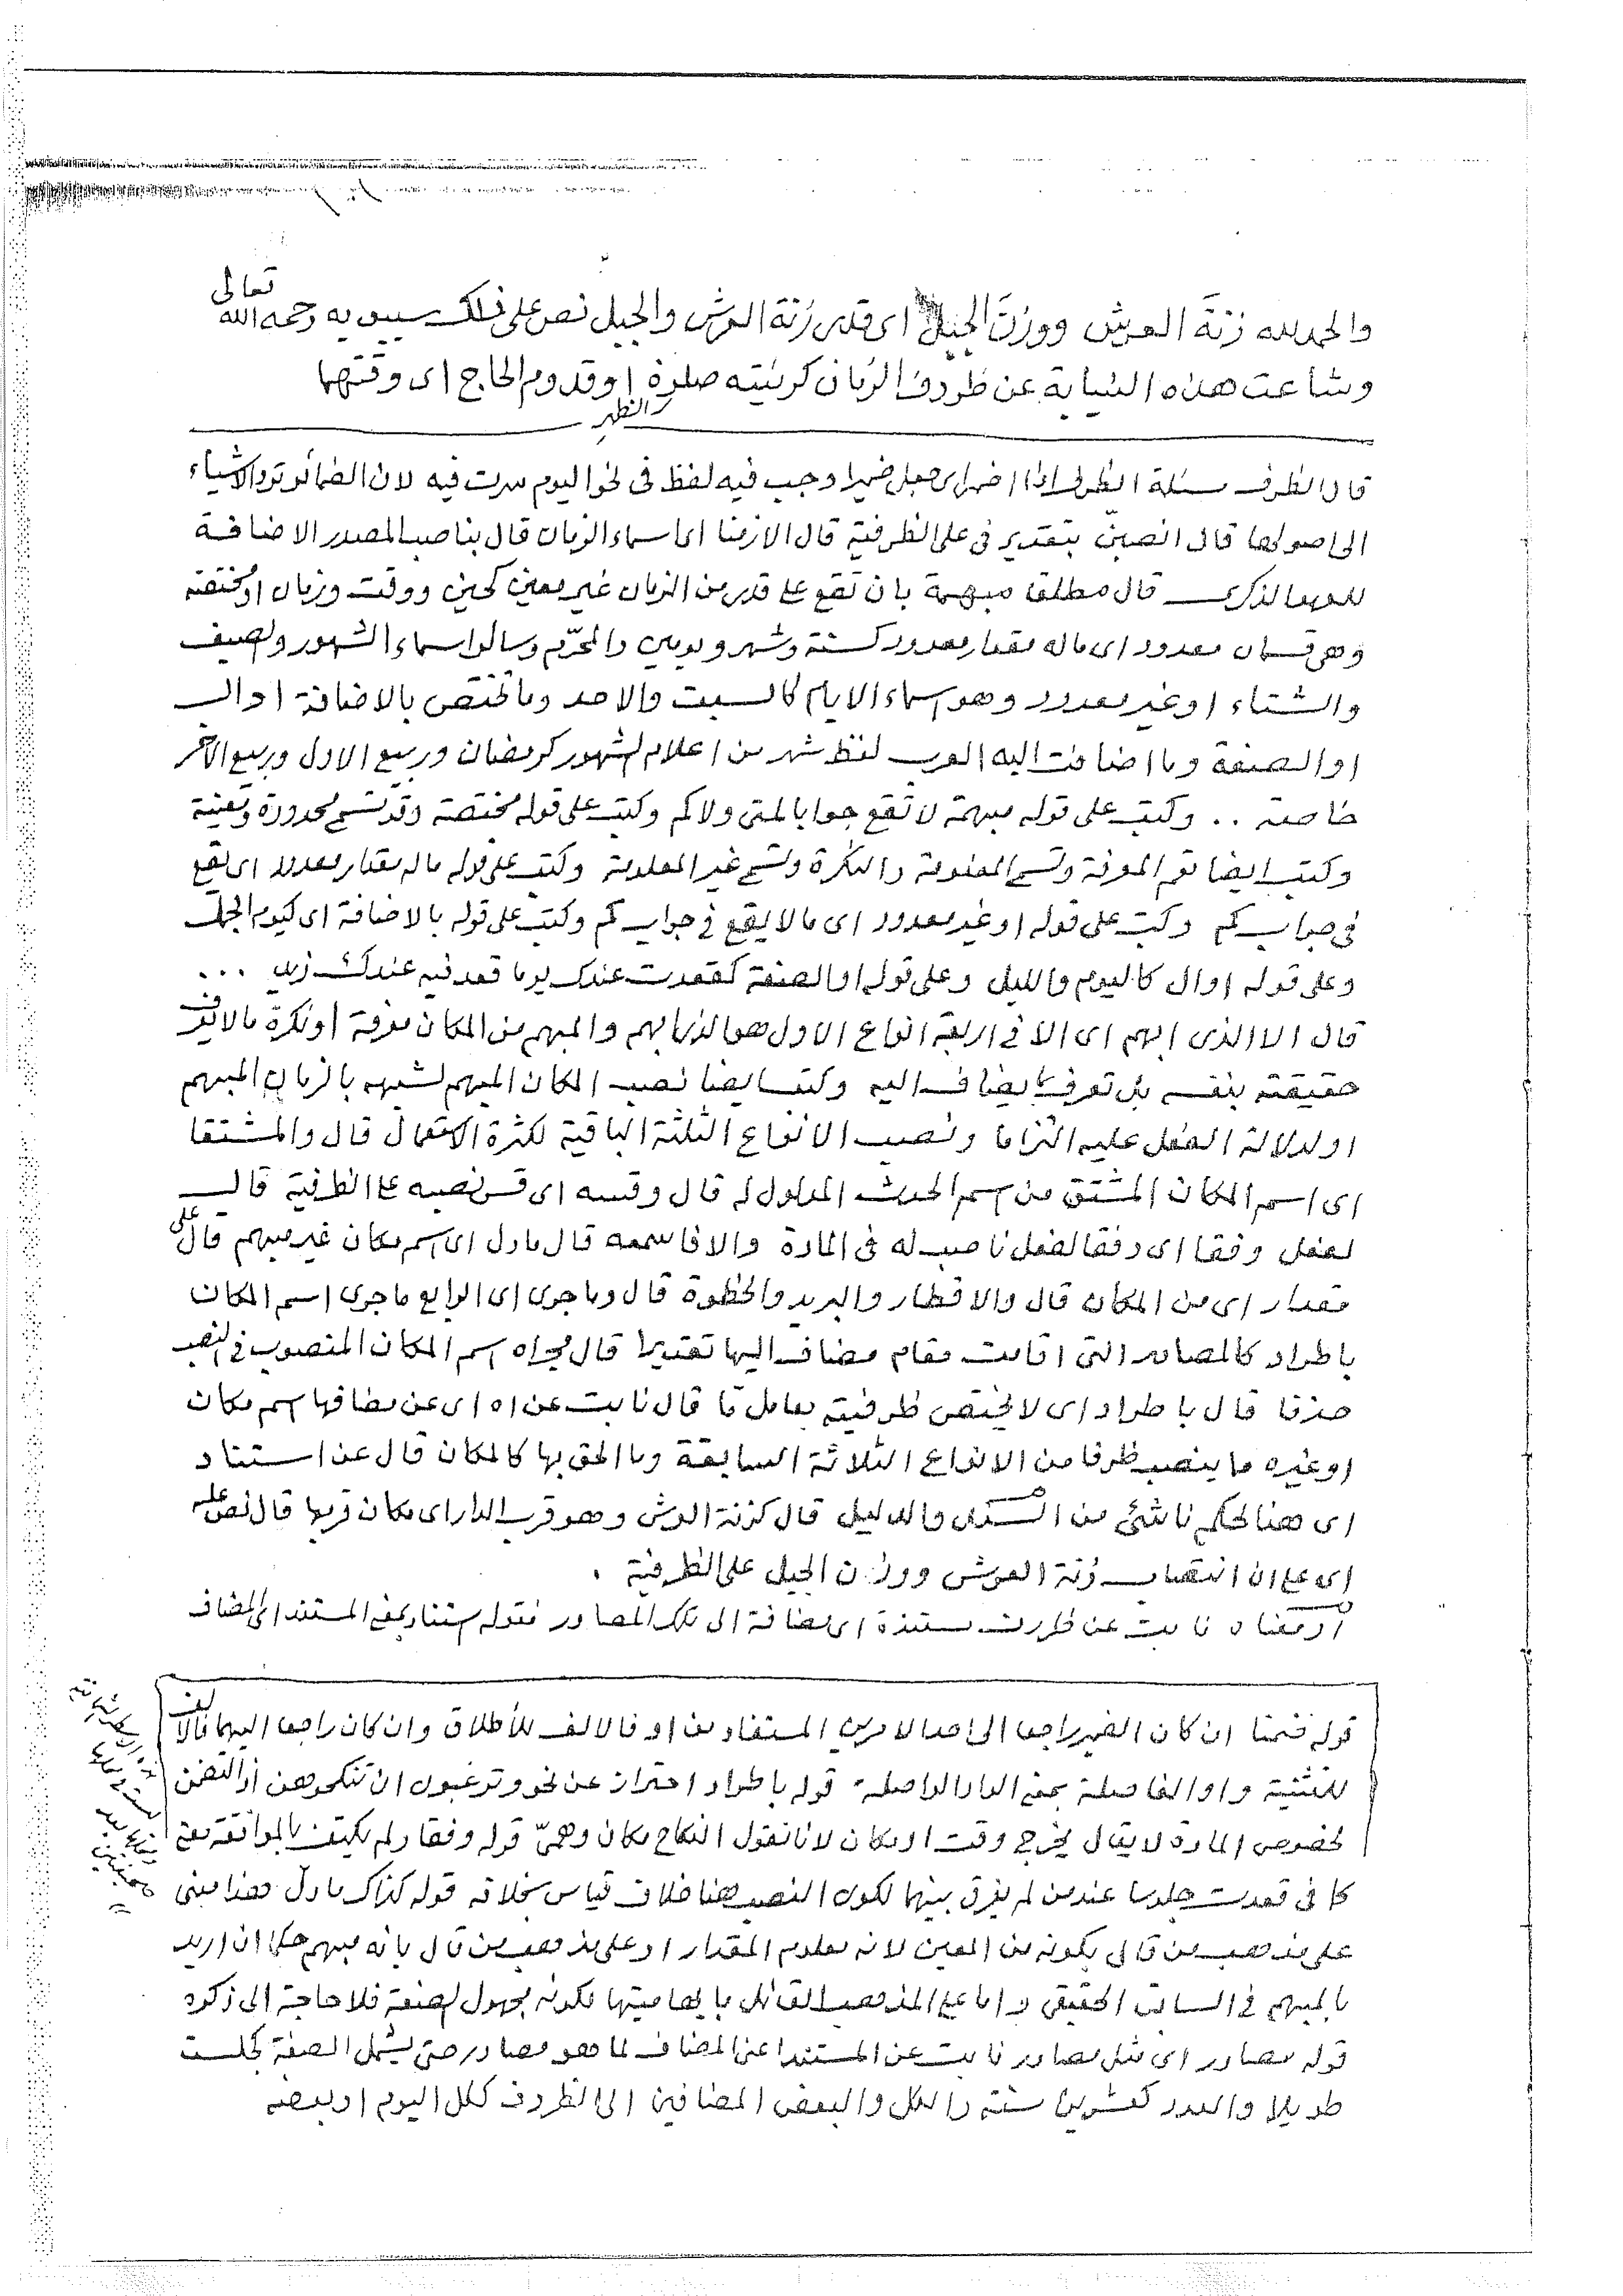 والحمد لله زنة العرش ووزن الجبل اى قدر زنة العرش والجبل نص على ذلك سيبويه رحمه الله تعالى
وشاعت هذه النيابة عن ظروف الزمان كرئيته صلوة او قدوم الحاج اى وقتهما
قال الظرف مسئلة الظرف اذا اضمر اى جعل ضميرا وجب فيه لفظ فى نحو اليوم سرت فيه لان الضمائر ترد الاشياء
الى اصولها قال انصبنّ بتقدير فى على الظرفية قال الازمنا اى اسماء الزمان قال بناصب المصدر الاضافة
للعهد الذكرى قال مطلقا مبهمة بان تقع على قدر من الزمان غير معين كحين ووقت وزمان او مختصة
وهى قسمان معدود اى ماله مقدار معدود كسنة وشهر ويومين والمحرّم وسائر اسماء الشهور والصيف
والشتاء او غير معدود وهو اسماء الايام كالسبت والاحد وما يختص بالاضافة او ال
او الصفة وما اضافت اليه العرب لفظ شهر من اعلام الشهور كرمضان وربيع الاول وربيع الآخر
خاصة .. وكتب على قوله مبهمة لا تقع جوابا لمتى ولا كم وكتب على قوله مختصة وقد تسمى محدودة وموقتة
وكتب ايضا تعم المعرفة وتسمى المعلومة والنكرة وتسمى غير المعلومة وكتب على قوله ماله مقدار معدود اى تقع
فى جواب كم وكتب على قوله او غير معدود اى مالا يقع فى جواب كم وكتب على قوله بالاضافة اى كيوم الجمل
وعلى قوله او ال كاليوم والليل وعلى قوله او الصفة كقعدت عندك يوما قعد فيه عندك زيد ...
قال الا الذى ابهم اى الا فى اربعة انواع الاول هو الذى ابهم والمبهم من المكان معرفة او نكرة مالا تعرف
حقيقته بنفسه بل تعرف بما يضاف اليه وكتب ايضا نصب المكان المبهم لشبهه بالزمان المبهم
او لدلالة الفعل عليه التزاما ونصب الانواع الثلثة الباقية لكثرة الاستعمال قال والمشتقا
اى اسم المكان المشتق من اسم الحدث المدلول له قال وقسه اى قس نصبه على الظرفية قال
لفعل وفقا اى وفقا لفعل ناصب له فى المادة والا فاسمعه قال مادل اى اسم مكان غير مبهم قال على
مقدار اى من المكان قال والاقطار والبريد والخطوة قال وما جرى اى الرابع ما جرى اسم المكان
باطراد كالمصادر التى اقامت مقام مضاف اليها تقديرا قال مجراه اسم المكان المنصوب فى النصب
حذفا قال باطراد اى لا يختص ظرفيته بعامل مّا قال نابت عن اه اى عن مضافها اسم مكان
او غيره ما ينصب ظرفا من الانواع الثلاثة السابقة وما الحق بها كالمكان قال عن استناد
اى هذا الحكم ناشئ من السند والدليل قال كزنة العرش وهو قرب الدار اى مكان قربها قال نص عليه
اى على ان انتصاب زنة العرش ووزن الجبل على الظرفية .
او معناه نابت عن ظروف مستندة اى مضافة الى تلك المصادر فقوله استناد بمعنى المستند اى المضاف
قوله ضمنا ان كان الضمير راجعا الى احد الامرين المستفاد من او فالالف للأطلاق وان كان راجعا اليهما فالالف
للتثنية واو الفاصلة بمعنى الواو الواصلة قوله باطراد احتراز عن نحو وترغبون ان تنكحوهن اذ التضمن
لخصوص المادة لا يقال يخرج وقت او مكان لانا نقول النكاح مكان وهمىّ قوله وفقا ولم يكتف بالموافقة معنى
كما فى قعدت جلوسا عند من لم يفرق بينهما لكون النصب هنا خلاف قياس بخلافه قوله كذاك مادل هذا مبنى
على مذهب من قال بكونه من المعين لانه معلوم المقدار او على مذهب من قال بانه مبهم حكما ان اريد
بالمبهم فى السابق الحقيقى واما على المذهب القائل بابهاميتها لكونه مجهول الصفة فلا حاجة الى ذكره
قوله مصادر اى مثل مصادر نابت عن المستند اعنى المضاف لما هو مصادر حتى يشمل الصفة كجلست
طويلا والعدد كعشرين سنة والكل والبعض المضافين الى الظروف ككل اليوم او بعضه